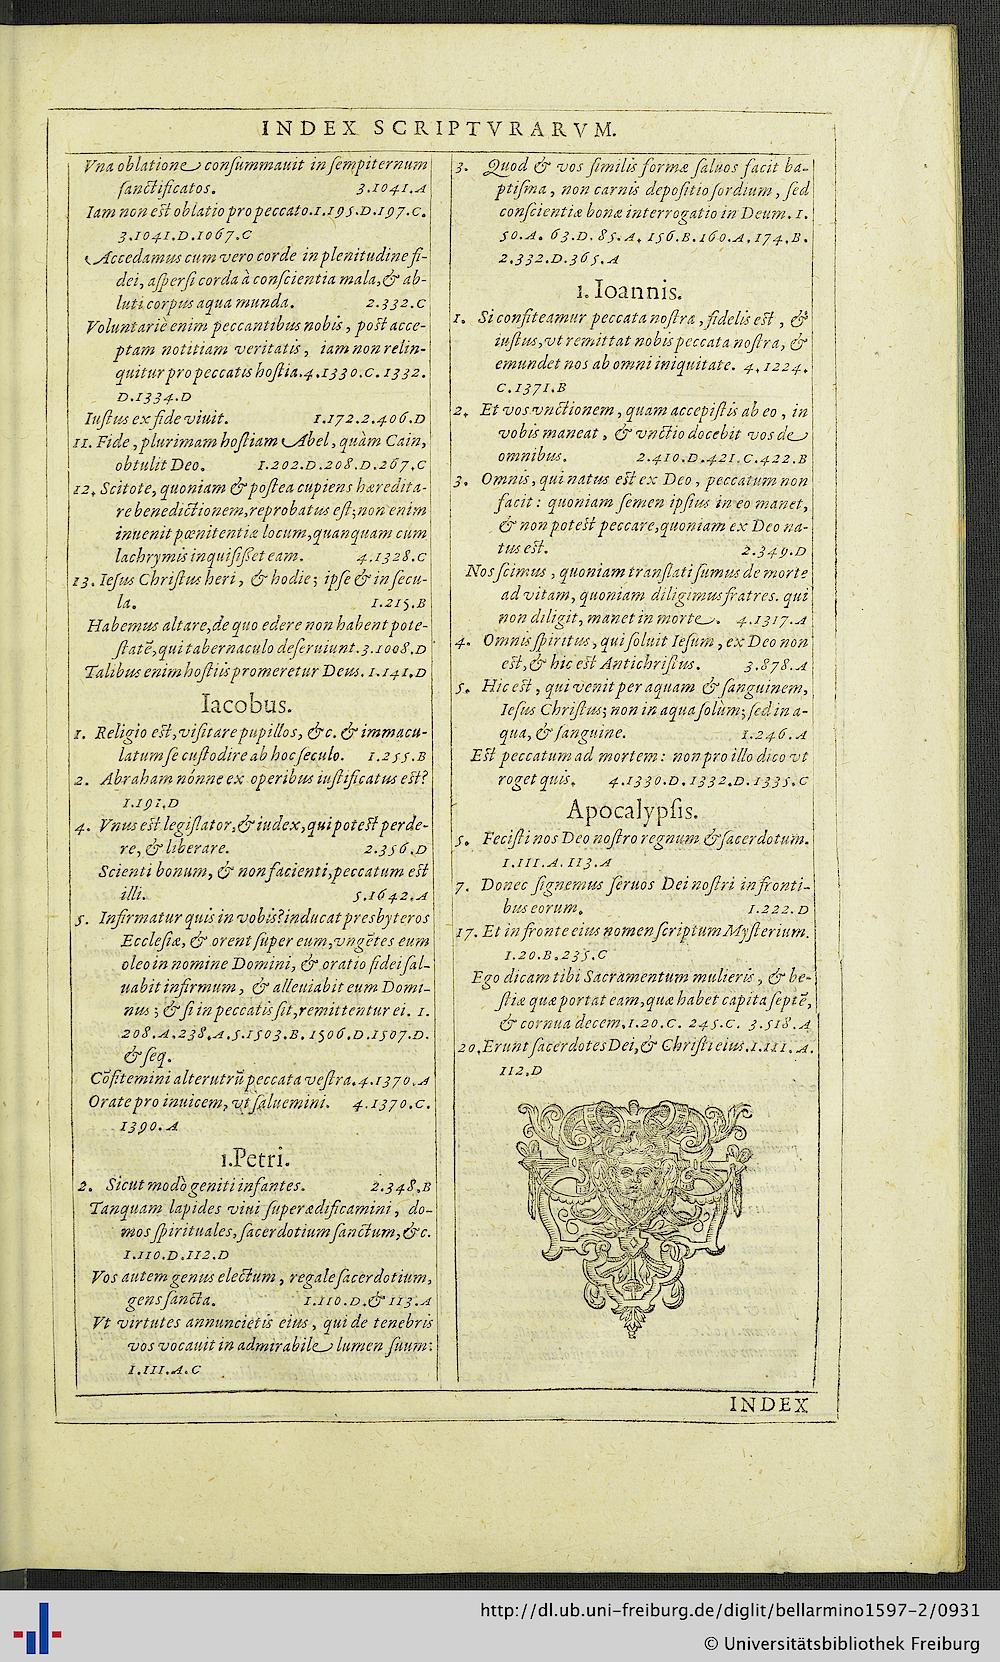 INDEX SCRIPTVRARVM.
Vna oblatione consummauit in sempiternum
sanctificatos. 3.1041.A
Iam non est oblatio pro peccato.1.195.D.197.C.
3.1041.D.1067.C
Accedamus cum vero corde in plenitudine fi-
dei, aspersi corda à conscientia mala,& ab-
luti corpus aqua munda. 2.332.C
Voluntariè enim peccantibus nobis, post acce-
ptam notitiam veritatis, iam non relin-
quitur pro peccatis hostia.4.1330.C.1332.
D.1334.D
Iustus ex fide viuit. 1.172.2.406.D
11. Fide, plurimam hostiam Abel, quàm Cain,
obtulit Deo. 1.202.D.208.D.267.C
12. Scitote, quoniam & postea cupiens hæredita-
re benedictionem,reprobatus est;non enim
inuenit pœnitentiæ locum,quanquam cum
lachrymis inquisisset eam. 4.1328.C
13. Iesus Christus heri, & hodie; ipse & in secu-
la. 1.215.B
Habemus altare,de quo edere non habent pote-
statē,qui tabernaculo deseruiunt.3.1008.D
Talibus enim hostiis promeretur Deus.1.141.D
Iacobus.
1. Religio est,visitare pupillos, &c. & immacu-
latum se custodire ab hoc seculo. 1.255.B
2. Abraham nónne ex operibus iustificatus est?
1.191.D
4. Vnus est legislator,& iudex,qui potest perde-
re, & liberare. 2.356.D
Scienti bonum, & non facienti,peccatum est
illi. 5.1642.A
5. Infirmatur quis in vobis? inducat presbyteros
Ecclesiæ, & orent super eum,vngētes eum
oleo in nomine Domini, & oratio fidei sal-
uabit infirmum, & alleuiabit eum Domi-
nus; & si in peccatis sit,remittentur ei. 1.
208.A.238.A.5.1503.B.1506.D.1507.D.
& seq.
Cōfitemini alterutrū peccata vestra.4.1370.A
Orate pro inuicem, vt saluemini. 4.1370.C.
1390.A
1.Petri.
2. Sicut modò geniti infantes. 2.348.B
Tanquam lapides viui superædificamini, do-
mos spirituales, sacerdotium sanctum,&c.
1.110.D.112.D
Vos autem genus electum, regale sacerdotium,
gens sancta. 1.110.D.& 113.A
Vt virtutes annuncietis eius, qui de tenebris
vos vocauit in admirabile lumen suum:
1.111.A.C
3. Quod & vos similis formæ saluos facit ba-
ptisma, non carnis depositio sordium, sed
conscientiæ bonæ interrogatio in Deum. 1.
50.A. 63.D. 85.A. 156.B.160.A.174.B.
2.332.D.365.A
1. Ioannis.
1. Si confiteamur peccata nostra, fidelis est, &
iustus,vt remittat nobis peccata nostra, &
emundet nos ab omni iniquitate. 4.1224.
C.1371.B
2. Et vos vnctionem, quam accepistis ab eo, in
vobis maneat, & vnctio docebit vos de
omnibus. 2.410.D.421.C.422.B
3. Omnis, qui natus est ex Deo, peccatum non
facit: quoniam semen ipsius in eo manet,
& non potest peccare,quoniam ex Deo na-
tus est. 2.349.D
Nos scimus, quoniam translati sumus de morte
ad vitam, quoniam diligimus fratres. qui
non diligit, manet in morte. 4.1317.A
4. Omnis spiritus, qui soluit Iesum, ex Deo non
est,& hic est Antichristus. 3.878.A
5. Hic est, qui venit per aquam & sanguinem,
Iesus Christus; non in aqua solùm; sed in a-
qua, & sanguine. 1.246.A
Est peccatum ad mortem: non pro illo dico vt
roget quis. 4.1330.D.1332.D.1335.C
Apocalypsis.
5. Fecisti nos Deo nostro regnum & sacerdotum.
1.111.A.113.A
7. Donec signemus seruos Dei nostri in fronti-
bus eorum. 1.222.D
17. Et in fronte eius nomen scriptum Mysterium.
1.20.B.235.C
Ego dicam tibi Sacramentum mulieris, & be-
stiæ quæ portat eam,quæ habet capita septē,
& cornua decem.1.20.C. 245.C. 3.518.A
20.Erunt sacerdotes Dei,& Christi eius.1.111.A.
112.D
INDEX
http://dl.ub.uni-freiburg.de/diglit/bellarmino1597-2/0931
© Universitätsbibliothek Freiburg